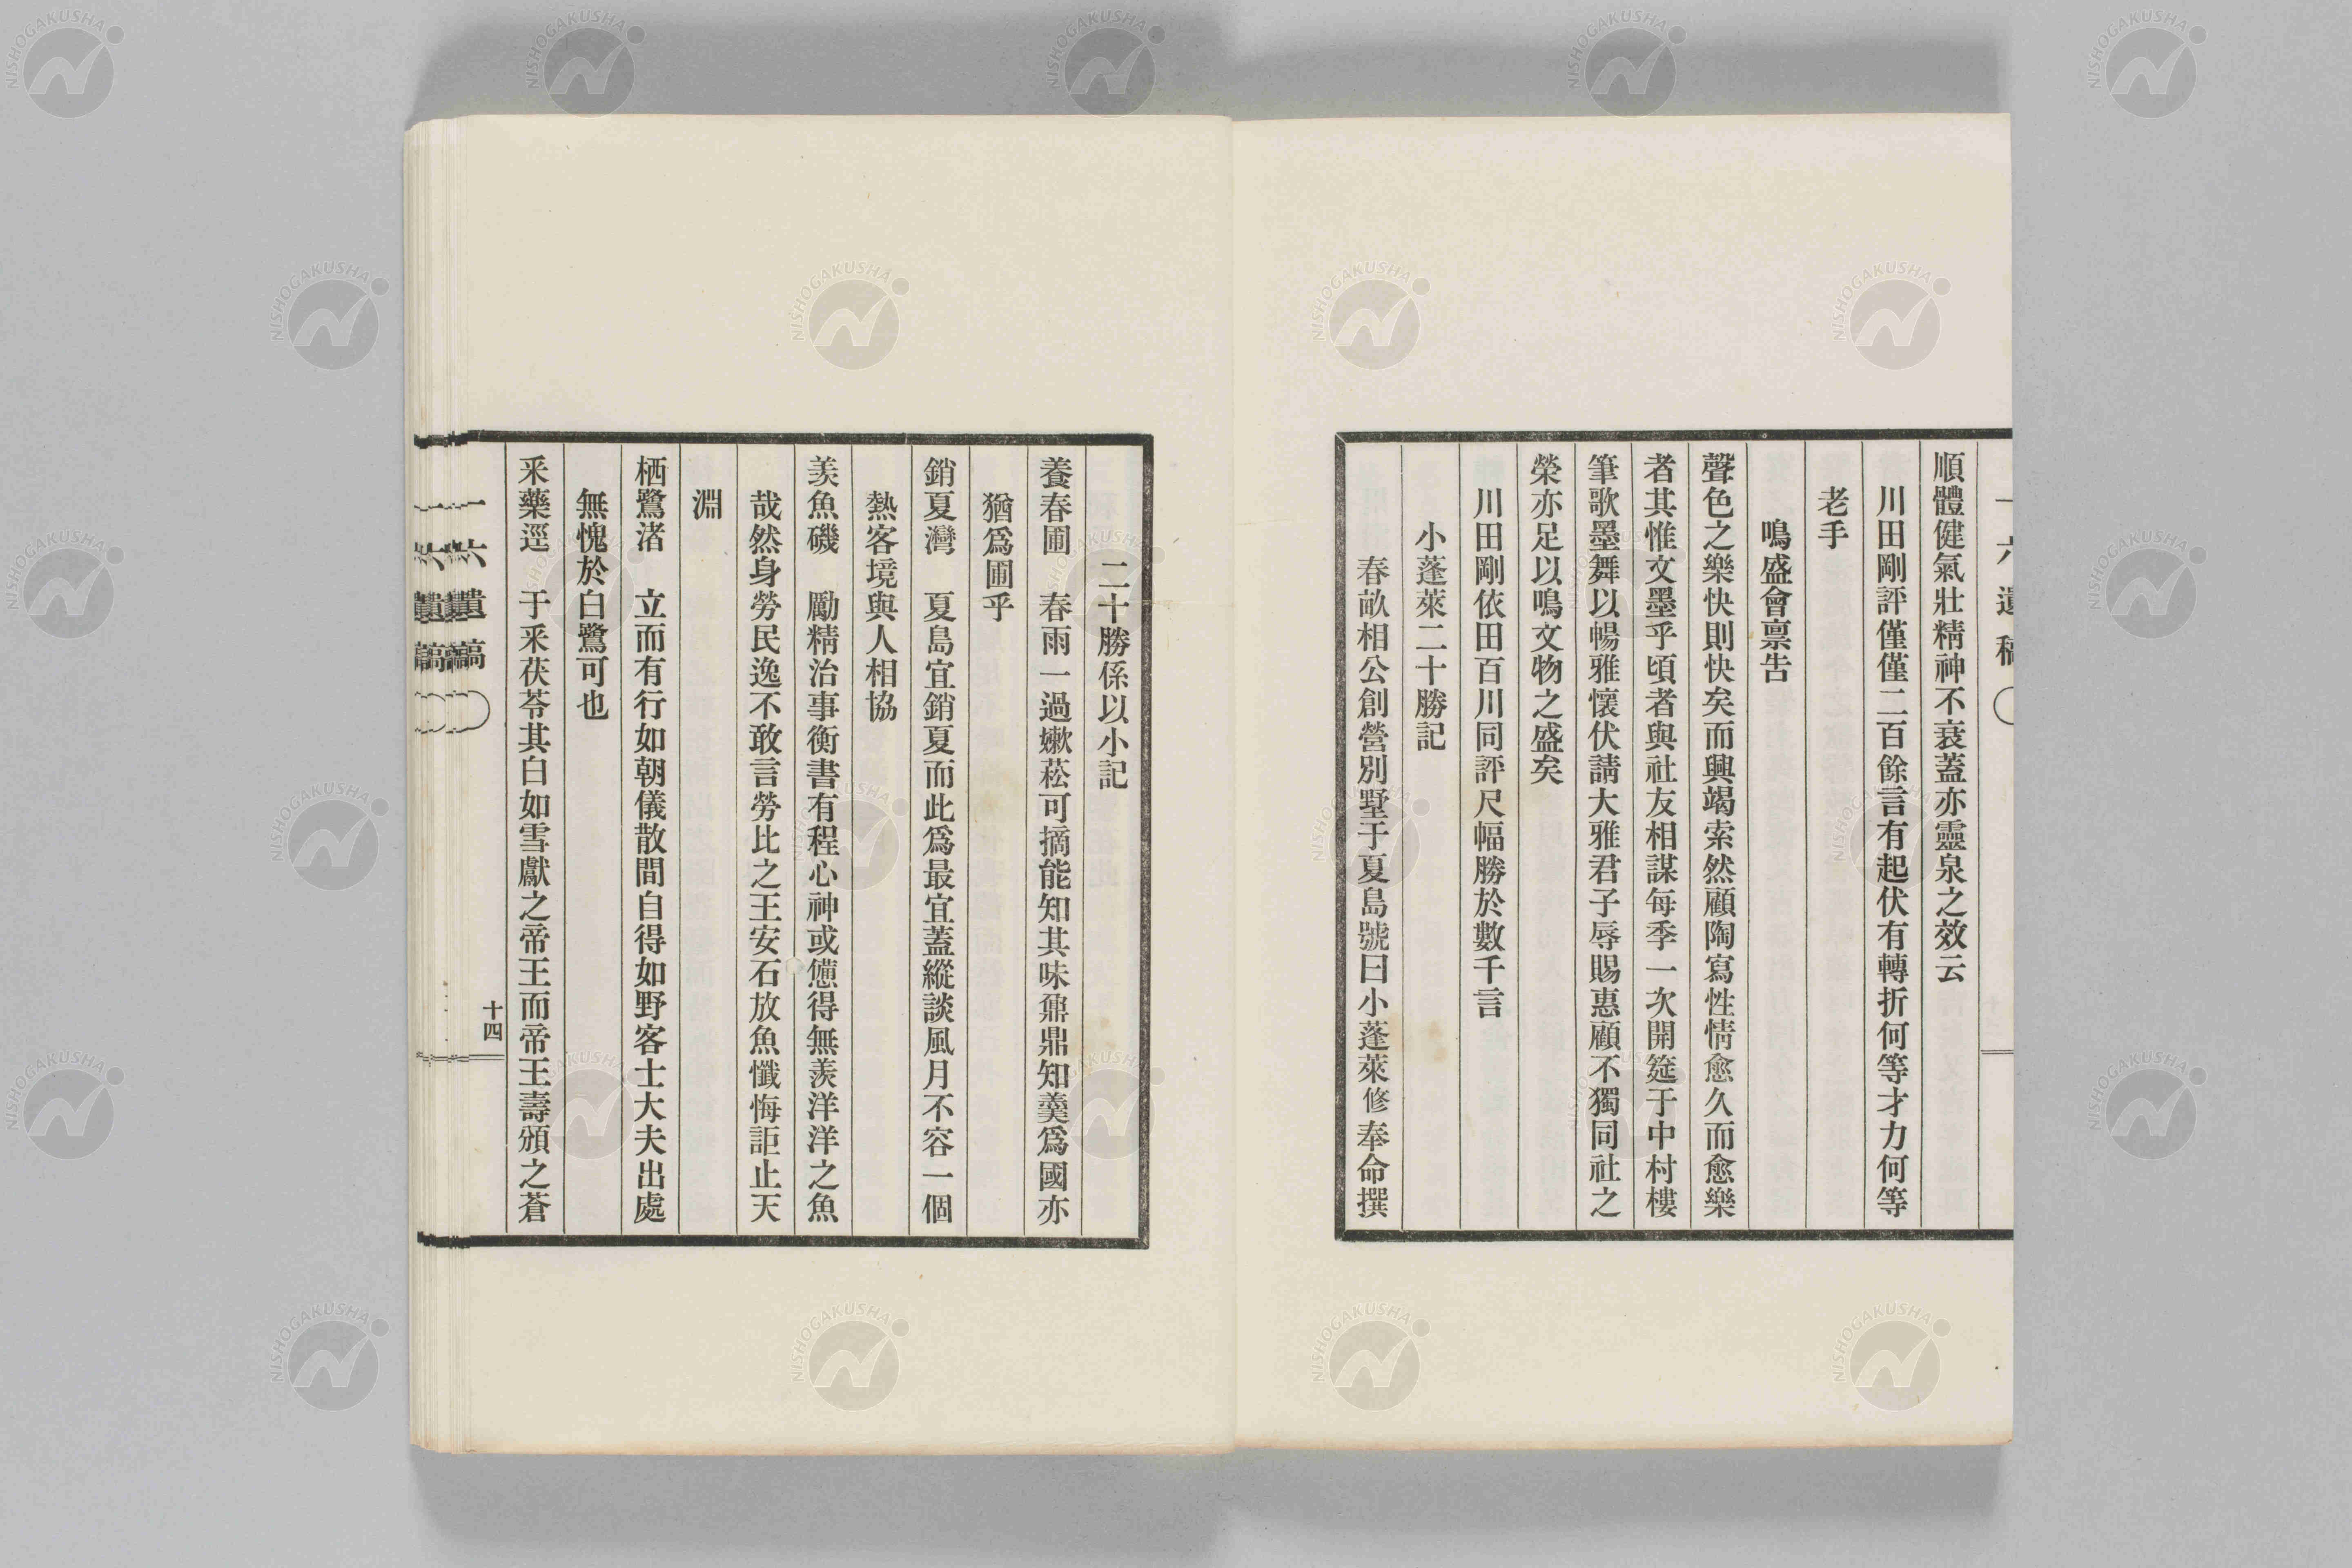 一六遺稿
順體健氣壯精神不衰蓋亦靈泉之效云
川田剛評僅僅二百餘言有起伏有轉折何等才力何等
老手
鳴盛會稟告
聲色之樂快則快矣而興竭索然顧陶寫性情愈久而愈樂
者其惟文墨乎頃者與社友相謀每季一次開筵于中村樓
筆歌墨舞以暢雅懷伏請大雅君子辱賜惠顧不獨同社之
榮亦足以鳴文物之盛矣
川田剛依田百川同評尺幅勝於數千言
小蓬萊二十勝記
春畝相公創營別墅于夏島號曰小蓬萊修奉命撰
二十勝係以小記
養春圃　春雨一過嫩菘可摘能知其味鼐鼎知羹爲國亦
猶爲圃乎
銷夏灣　夏島宜銷夏而此爲最宜蓋縱談風月不容一個
熱客境與人相協
羨魚磯　勵精治事衡書有程心神或憊得無羨洋洋之魚
哉然身勞民逸不敢言勞比之王安石放魚懺悔詎止天
淵
栖鷺渚　立而有行如朝儀散間自得如野客士大夫出處
無愧於白鷺可也
采藥逕　于采茯苓其白如雪獻之帝王而帝王壽頒之蒼
一六遺稿
十四
NISHOGAKUSHA